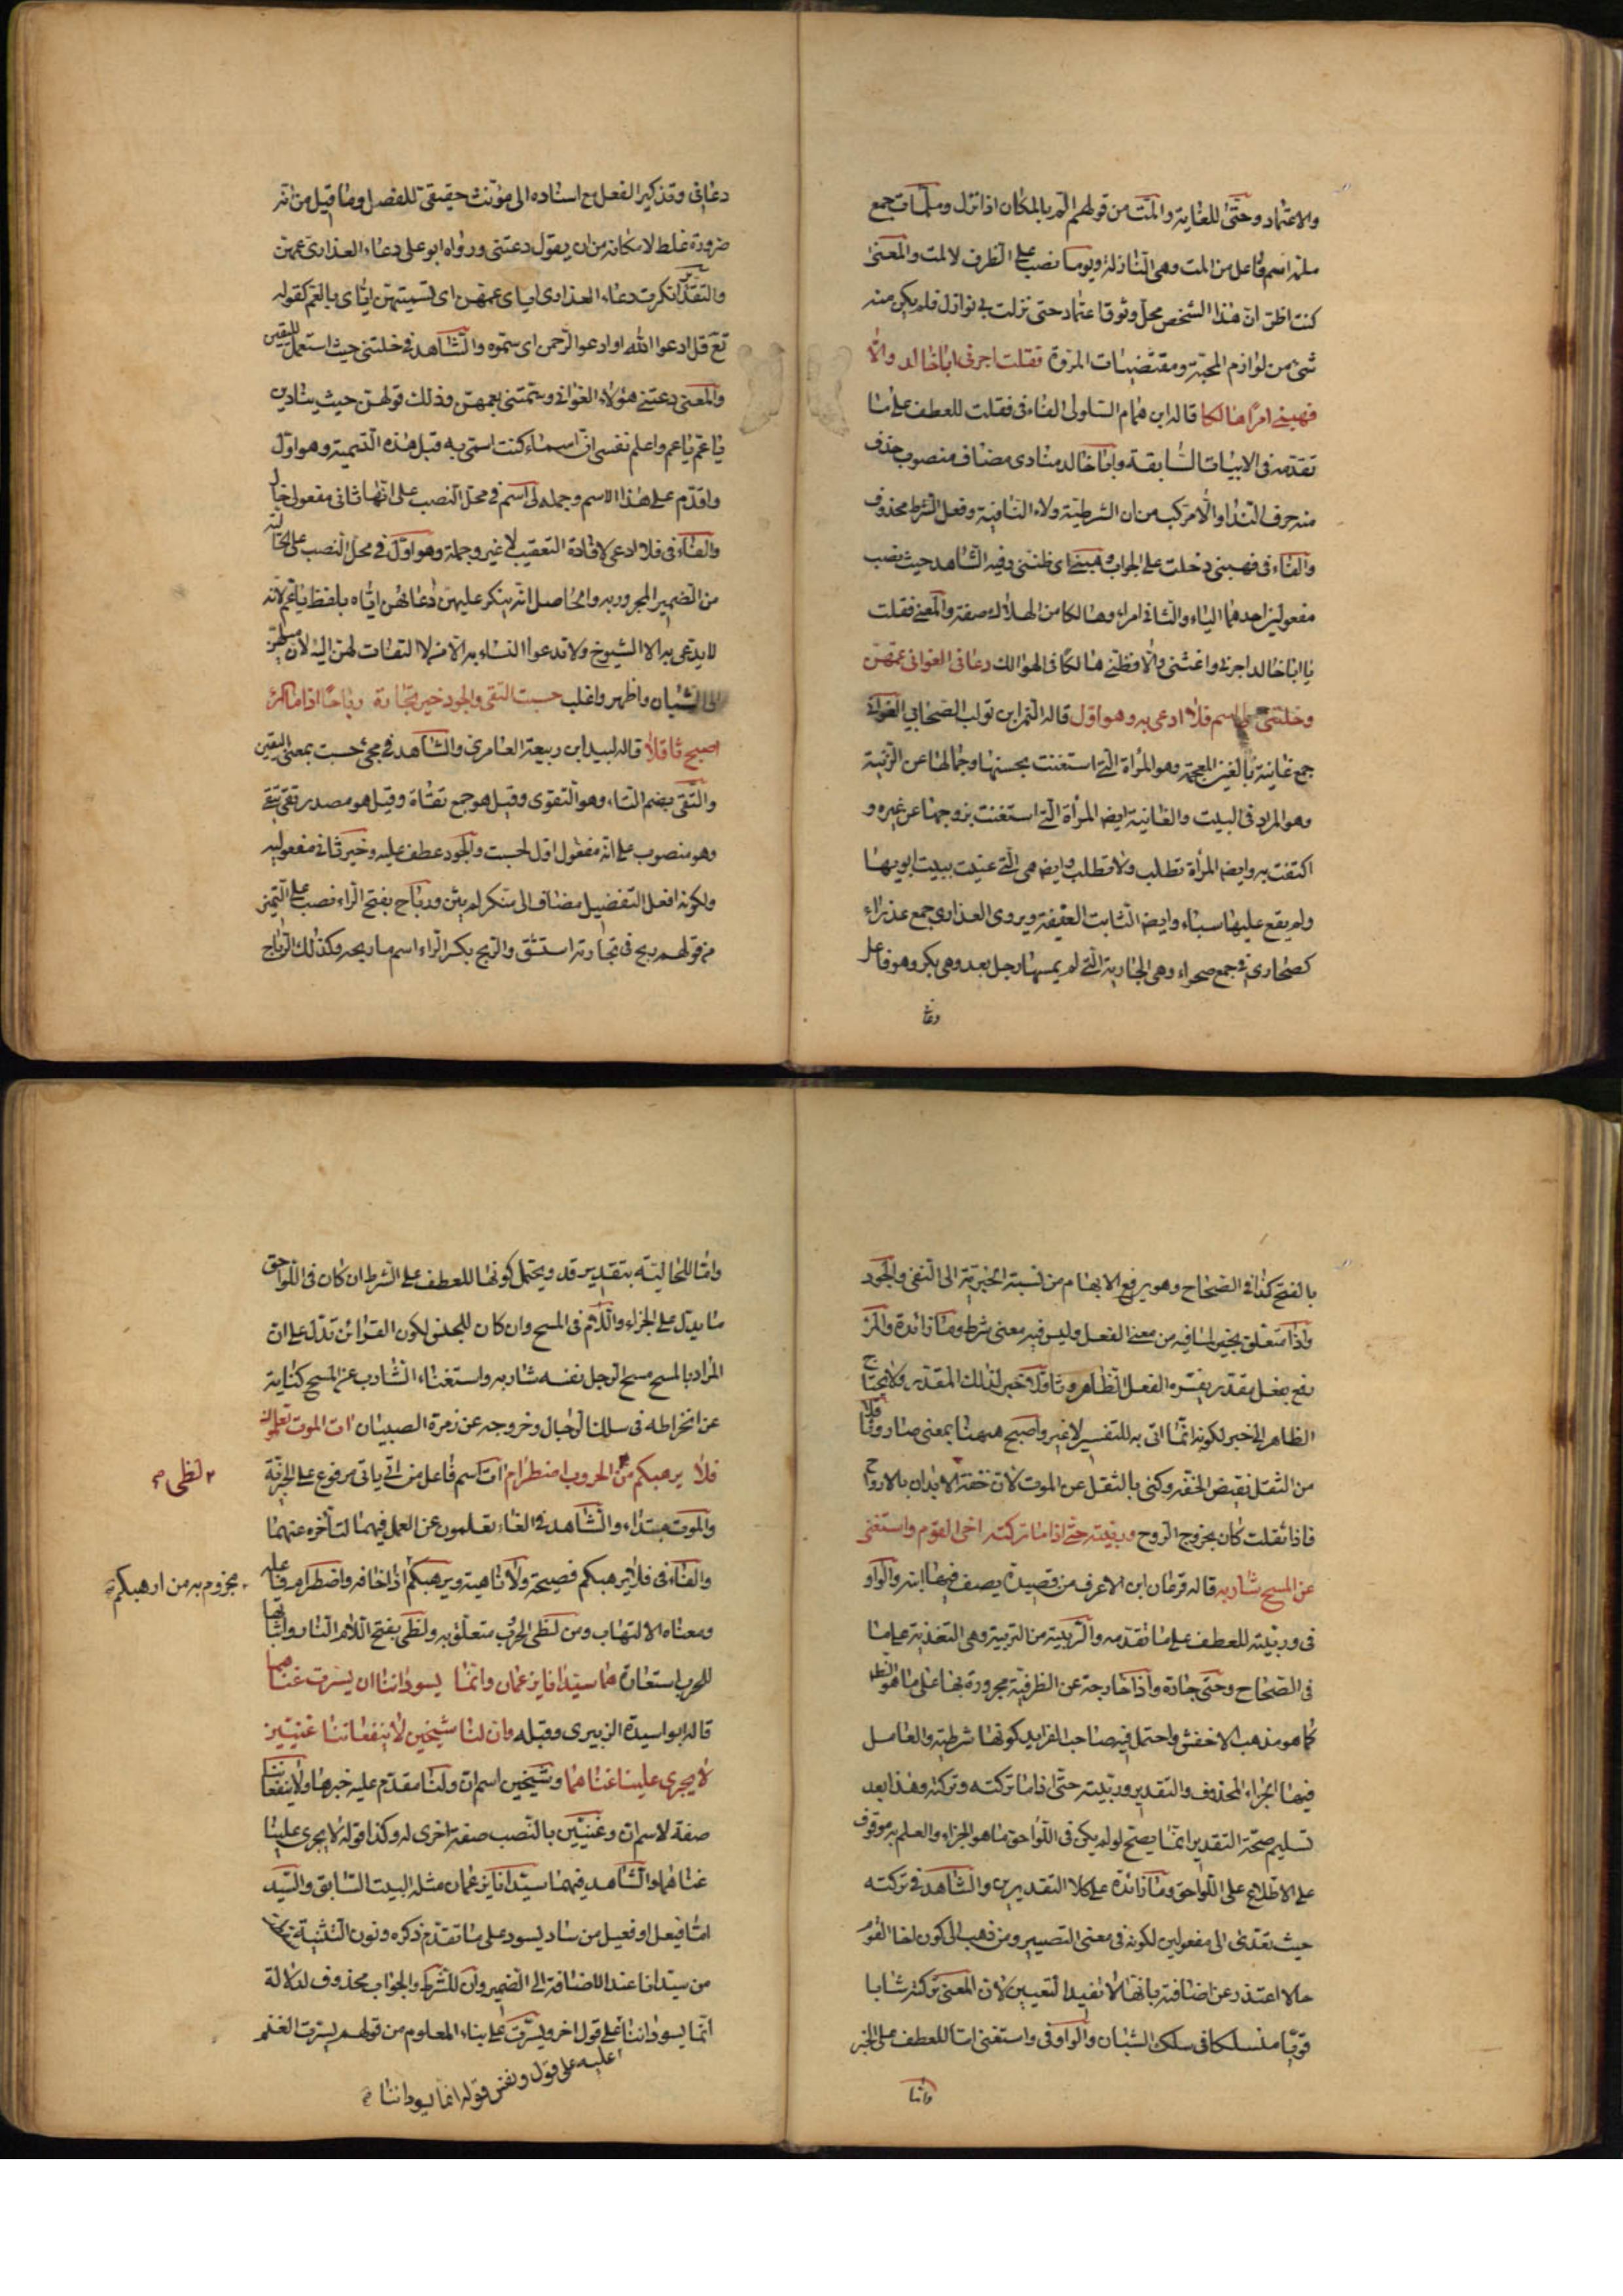 والاعتماد وحتى للغاية والمت من قولهم الم بالمكان اذا نزل وملمات جمع
ملمة اسم فاعل من المت وهى النازلة ويوما نصب على الظرف لالمت والمعنى
كنت اظن ان هذا الشخص محل وثوق واعتماد حتى نزلت بى نوازل فلم يكن منه
شئ من لوازم المحبة ومقتضيات المروة فقلت اجرنى ابا خالد والا
فهبنى امرأ هالكا قاله ابن همام السلولى الفاء فى فقلت للعطف على ما
تقدمه فى الابيات السابقة وابا خالد منادى مضاف منصوب حذف
منه حرف النداء والا مركب من ان الشرطية ولاء النافية وفعل الشرط محذوف
والفاء فى فهبنى دخلت على الجواب وهبنى اى ظننى وفيه الشاهد حيث نصب
مفعولين احدهما الياء والثانى امراء وهالكا من الهلاك صفة والمعنى فقلت
يا ابا خالد اجرنى واغثنى والا فظننى هالكا فى الهوالك دعانى الغوانى عمهن
وخلتنى لى اسم فلا ادعى به وهو اول قاله النمر ابن تولب الصحابى الغوانى
جمع غانية بالغين المعجمة وهو المرأة التى استغنت بحسنها وجمالها عن الزينة
وهو المراد فى البيت والغانية ايضا المرأة التى استغنت بزوجها عن غيره و
اكتفت به وايضا المرأة تطلب ولا تطلب وايضا هى التى غنيت ببيت ابويها
ولم يقع عليها سباء وايضا الشابت العفيفة ويروى العذارى جمع عذراء
كصحارى فى جمع صحراء وهى الجارية التى لم يمسها رجل بعد وهى بكر وهو فاعل
دعا
دعانى وتذكير الفعل مع اسناده الى مؤنث حقيقى للفصل وما قيل من انه
ضرورة غلط لامكانه من ان يقول دعتنى ورواه ابو على دعاء العذارى عمهن
والتقدير انكرت دعاء العذارى اياى عمهن اى تسميتهن اياى بالعم كقوله
تع قل ادعوا الله او ادعوا الرحمن اى سموه والشاهد فى خلتنى حيث استعمل لليقين
والمعنى دعتنى هؤلاء الغوانى وسمتنى بعمهن وذلك قولهن حيث ينادين
يا عم يا عم واعلم نفسى ان اسماء كنت اسمى به قبل هذه التسمية وهو اول
واقدم على هذا الاسم وجملة لى اسم فى محل النصب على انها ثانى مفعولى خال
والفاء فى فلا ادعى لافادة التعقيب لا غير وجملة وهو اول فى محل النصب على الحالية
من الضمير المجرور به والحاصل انه ينكر عليهن دعائهن اياه بلفظ يا عم لانه
لا يدعى به الا الشيوخ ولا تدعوا النساء به الا من لا التفات لهن اليه لان ميلهن
الى الشبان واظهر واغلب حسبت التقى والجود خير تجارة رباحا اذا ما المرء
اصبح ثاقلا قاله لبيد ابن ربيعة العامرى والشاهد فى مجئ حسبت بمعنى اليقين
والتقى بضم التاء وهو التقوى وقيل هو جمع تقاة وقيل هو مصدر تقى يتقى
وهو منصوب على انه مفعول اول لحسبت والجود عطف عليه وخير ثانى مفعوليه
ولكونه افعل التفضيل مضاف الى منكر لم يثن ورباح بفتح الراء نصب على التميز
من قولهم ربح فى تجارته استشق والربح بكسر الراء اسم ما ربحه وكذلك الرباح
بالفتح كذا فى الصحاح وهو يرفع الابهام من نسبة الخيرية الى التقى والجود
واذا متعلق بخير لما فيه من معنى الفعل وليس فيه معنى شرط وما زائدة والمرء
رفع بفعل مقدر يفسره الفعل الظاهر وثاقلا خبر لذلك المقدر ولا يحتاج
الظاهر الى خبر لكونه انما اتى به للتفسير لا غير واصبح ههنا بمعنى صار وثاقلا
من الثقل نقيض الخفة وكنى بالثقل عن الموت لان خفة الابدان بالارواح
فاذا ثقلت كان بخروج الروح وربيته حتى اذا ما تركته اخى القوم واستغنى
عن المسح شاربه قاله فرعان ابن الاعرف من قصيدة يصف فيها ابنه والواو
فى وربيته للعطف على ما تقدمه والتربية من التربية وهى التغذية على ما
فى الصحاح وحتى جارة واذا خارجة عن الظرفية مجرورة بها على ما هو الظ
كما هو مذهب الاخفش واحتمل فيه صاحب الفرايد كونها شرطية والعامل
فيها الجزاء المحذوف والتقدير وربيته حتى اذا ما تركته وتركته وهذا بعد
تسليم صحة التقدير انما يصح لو لم يكن فى اللواحق ما هو الجزاء والعلم به موقوف
على الاطلاع على اللواحق وما زائدة على كلا التقديرين والشاهد فى تركته
حيث تعدى الى مفعولين لكونه فى معنى التصيير ومن ذهب الى كون اخا القوم
حالا اعتذر عن اضافته بانها لا تفيد التعيين لان المعنى تركته شابا
قويا منسلكا فى سلك الشبان والواو فى واستغنى اما للعطف على الخبر
واما
واما للحالية بتقدير قد ويحتمل كونها للعطف على الشرط ان كان فى اللواحق
ما يدل على الجزاء واللام فى المسح وان كان للجنس لكون القرائن تدل على ان
المراد بالمسح مسح الرجل نفسه شاربه واستغناء الشارب عن المسح كناية
عن انخراطه فى سلك الرجال وخروجه عن زمرة الصبيان ات الموت تعلمون
فلا يرهبكم من الحروب اضطرام ات اسم فاعل من اتى ياتى مرفوع على الخبرية
٢ لظى م
والموت مبتداء والشاهد فى الغاء تعلمون عن العمل فيهما لتأخره عنهما
والفاء فى فلا يرهبكم فصيحة ولا ناهية ويرهبكم اذا خافه واضطرام فاعله
مجزوم به من ارهبكم
ومعناه الالتهاب ومن لظى الحرب متعلق به ولظى بفتح اللام النار واثباتها
للحرب استعارة هما سيدانا يزعمان وانما يسوداننا ان يسرت غنماهما
قاله ابو اسيدة الزبيرى وقبله وان لنا شيخين لا ينفعاننا غنيين
لا يجرى علينا غناهما وشيخين اسم ان ولنا مقدم عليه خبرها ولا ينفعاننا
صفة لاسم ان وغنيين بالنصب صفة اخرى له وكذا قوله لا يجرى علينا
غناهما والشاهد فيهما سيدانا يزعمان مثله البيت السابق والسيد
اما فيعل او فعيل من ساد يسود على ما تقدم ذكره ونون التثنية
من سيدانا عند الاضافة الى الضمير وان للشرط والجواب محذوف لدلالة
انما يسوداننا على قول اخر ويسرت على بناء المعلوم من قولهم يسرت الغنم
عليه على قول ونفس قوله انما يسوداننا